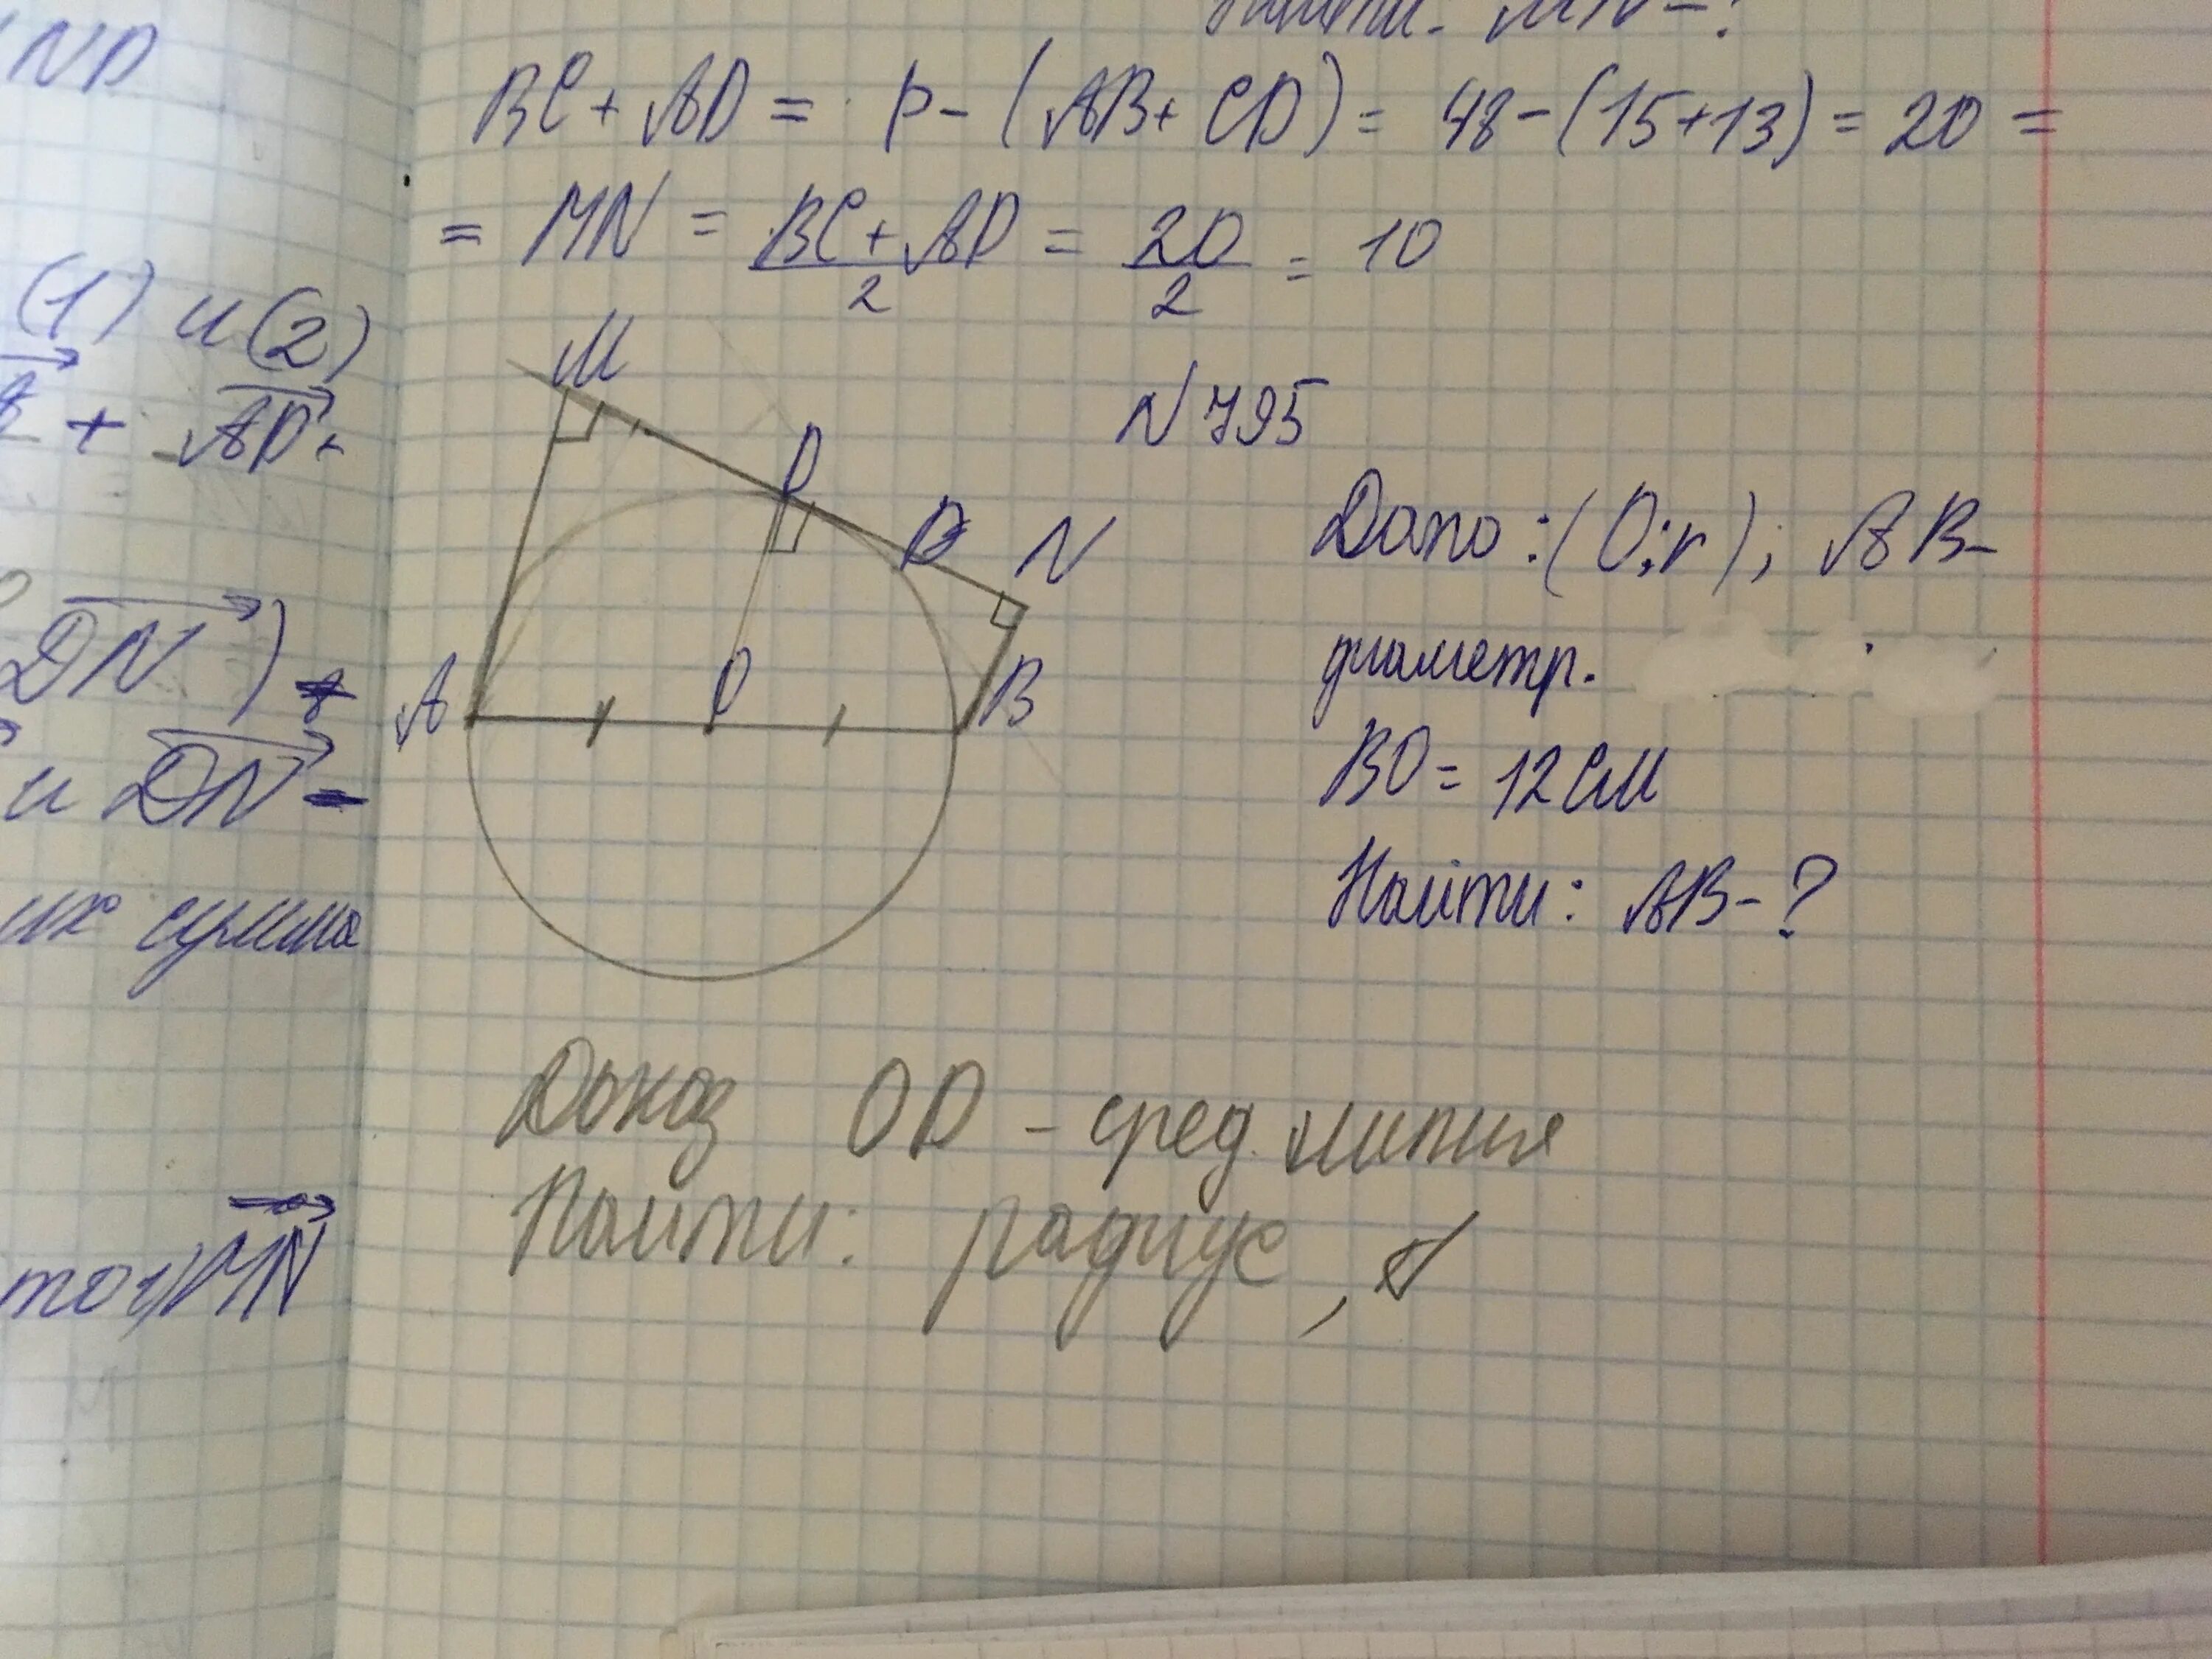 ND
(1) и (2)
+ AD
DN)
и DN -
их сумма
MN
BC + AD = P - (AB + CD) = 48 - (15 + 13) = 20 =
= MN = BC + AD / 2 = 20 / 2 = 10
M
D
D
N
A
O
B
N 795
Дано: (O; r); AB -
диаметр.
BO = 12 см
Найти: AB - ?
Доказ OD - сред. линия
Найти: радиус,